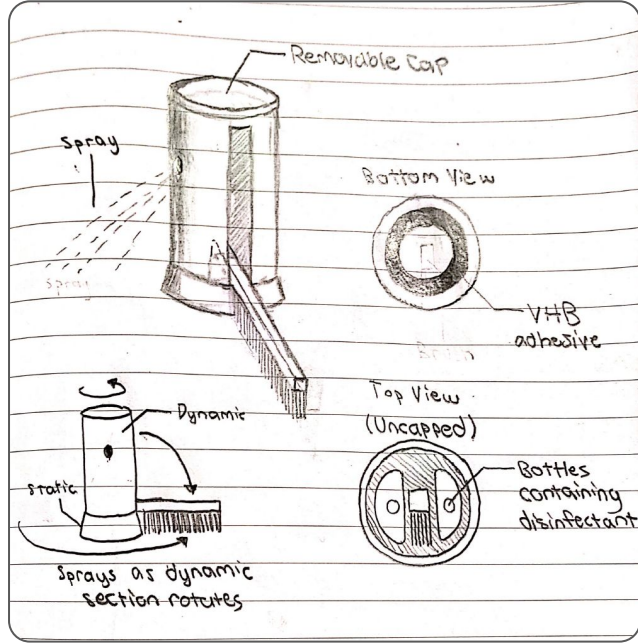 Removable Cap
Spray
Bottom View
VHB
adhesive
Top View
(Uncapped)
Dynamic
Static
Bottles
containing
disinfectant
Sprays as dynamic
section rotates